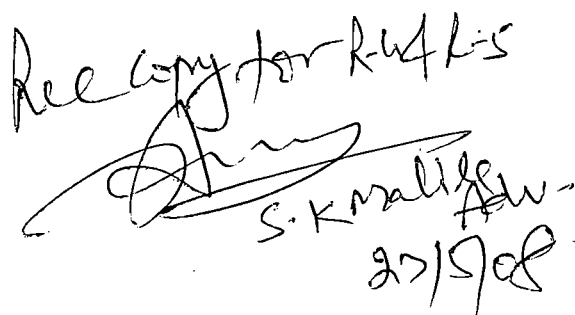 Rec copy for R-4 & R-5
S. K Malik
Adv.
27/5/08